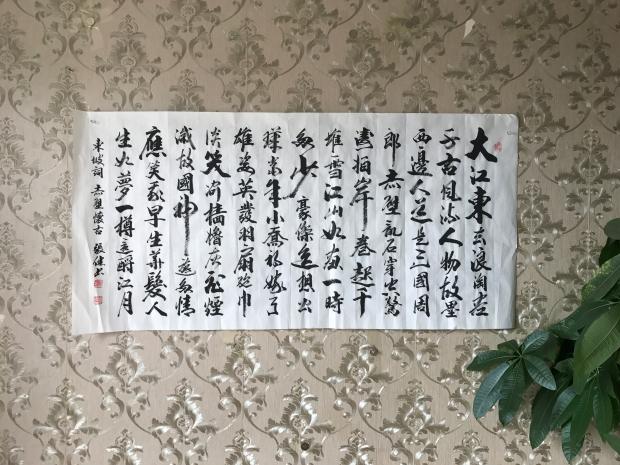 大江東去浪淘盡
千古風流人物故壘
西邊人道是三國周
郎赤壁亂石穿空驚
濤拍岸卷起千
堆雪江山如畫一時
多少豪傑遥想公
瑾當年小喬初嫁了
雄姿英發羽扇綸巾
談笑間檣櫓灰飛煙
滅故國神遊多情
應笑我早生華髮人
生如夢一樽還酹江月
東坡詞 赤壁懷古 張健書